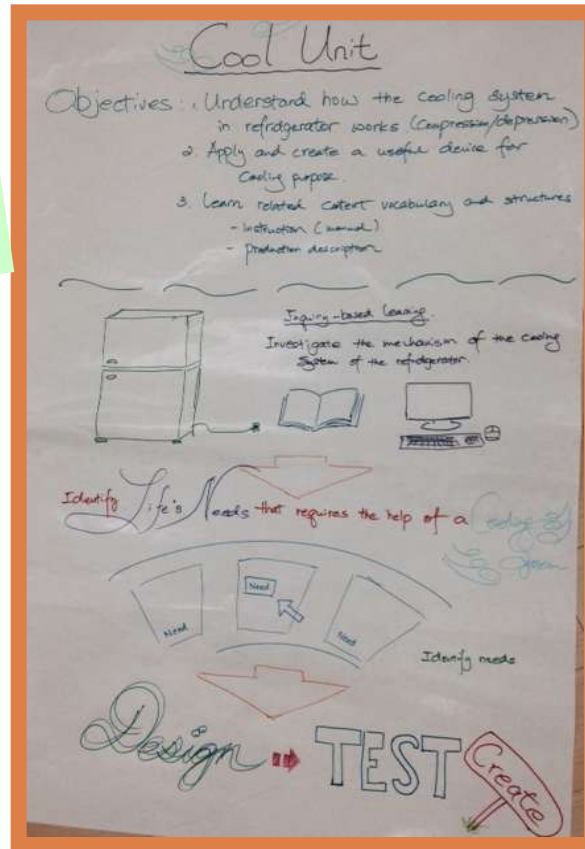 Cool Unit
Objectives: 1. Understand how the cooling system
in refridgerator works (compression/depression)
2. Apply and create a useful device for
Cooling purpose.
3. Learn related content vocabulary and structures
- instruction (manual)
- production description
Inquiry-based learning.
Investigate the mechanism of the cooling
System of the refridgerator.
Identify Life's Needs that requires the help of a Cooling
System
Need
Need
Need
Identify needs
Design TEST Create